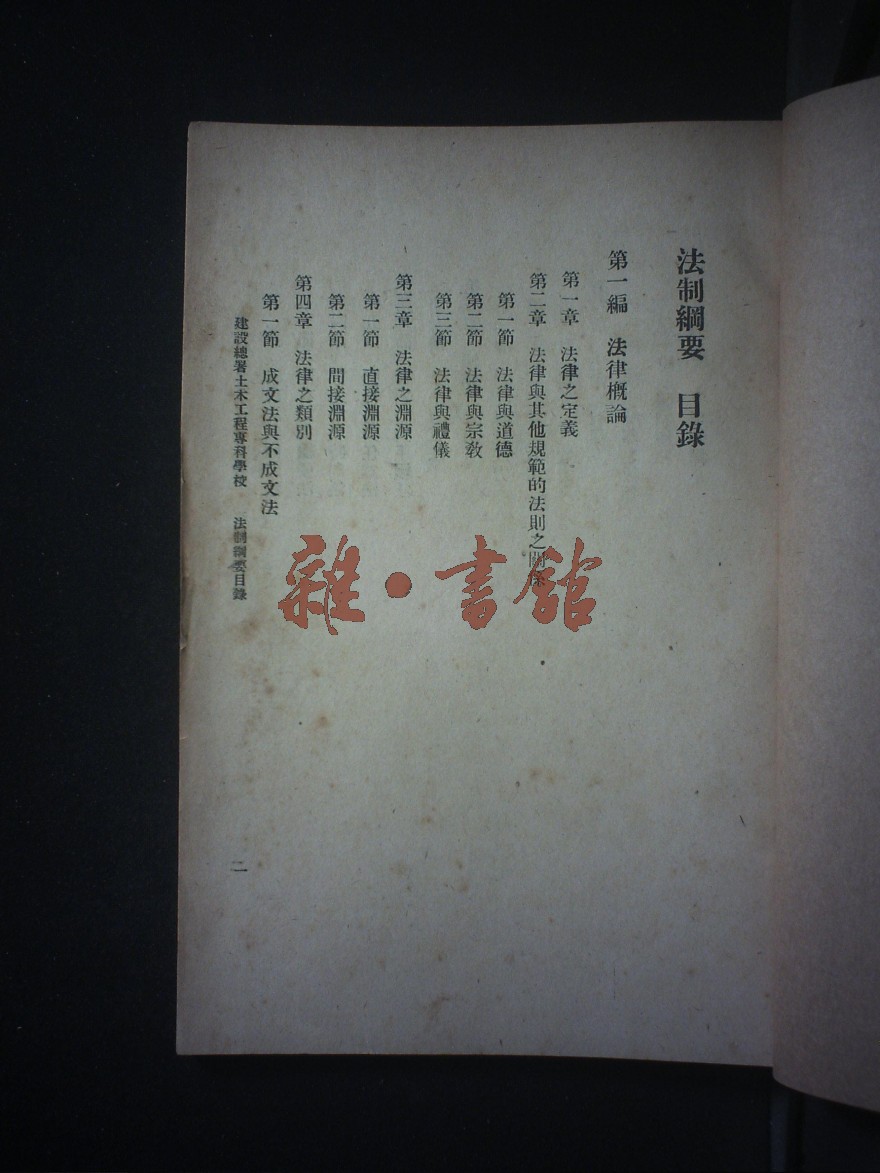 法制綱要　目錄
第一編　法律概論
第一章　法律之定義
第二章　法律與其他規範的法則之關係
第一節　法律與道德
第二節　法律與宗教
第三節　法律與禮儀
第三章　法律之淵源
第一節　直接淵源
第二節　間接淵源
第四章　法律之類別
第一節　成文法與不成文法
建設總署土木工程專科學校　法制綱要目錄
二
雜·書館